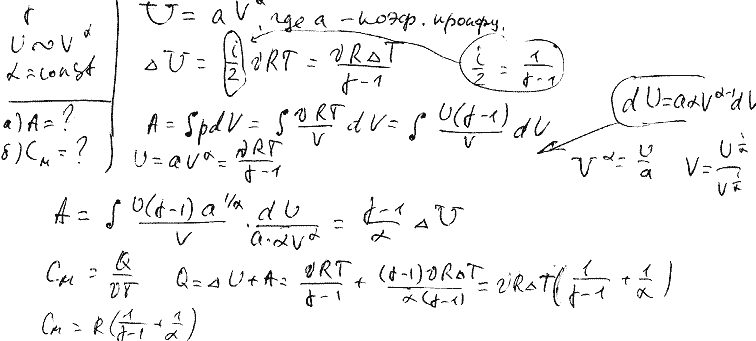 γ
U ~ V^α
α = const
а) A = ?
б) C_м = ?
U = a V^α, где a - коэф. пропорц.
ΔU = (i/2) νRT = νRΔT/(γ-1)
i/2 = 1/(γ-1)
A = ∫pdV = ∫ νRT/V dV = ∫ U(γ-1)/V dV
dU = aαV^(α-1) dV
U = aV^α = νRT/(γ-1)
V^α = U/a
A = ∫ U(γ-1) a^(1/α)/V · dU/(a·αV^α) = (γ-1)/α ΔU
C_м = Q/νT
Q = ΔU + A = νRT/(γ-1) + (γ-1)νRΔT/(α(γ-1)) = νRΔT(1/(γ-1) + 1/α)
C_м = R(1/(γ-1) + 1/α)